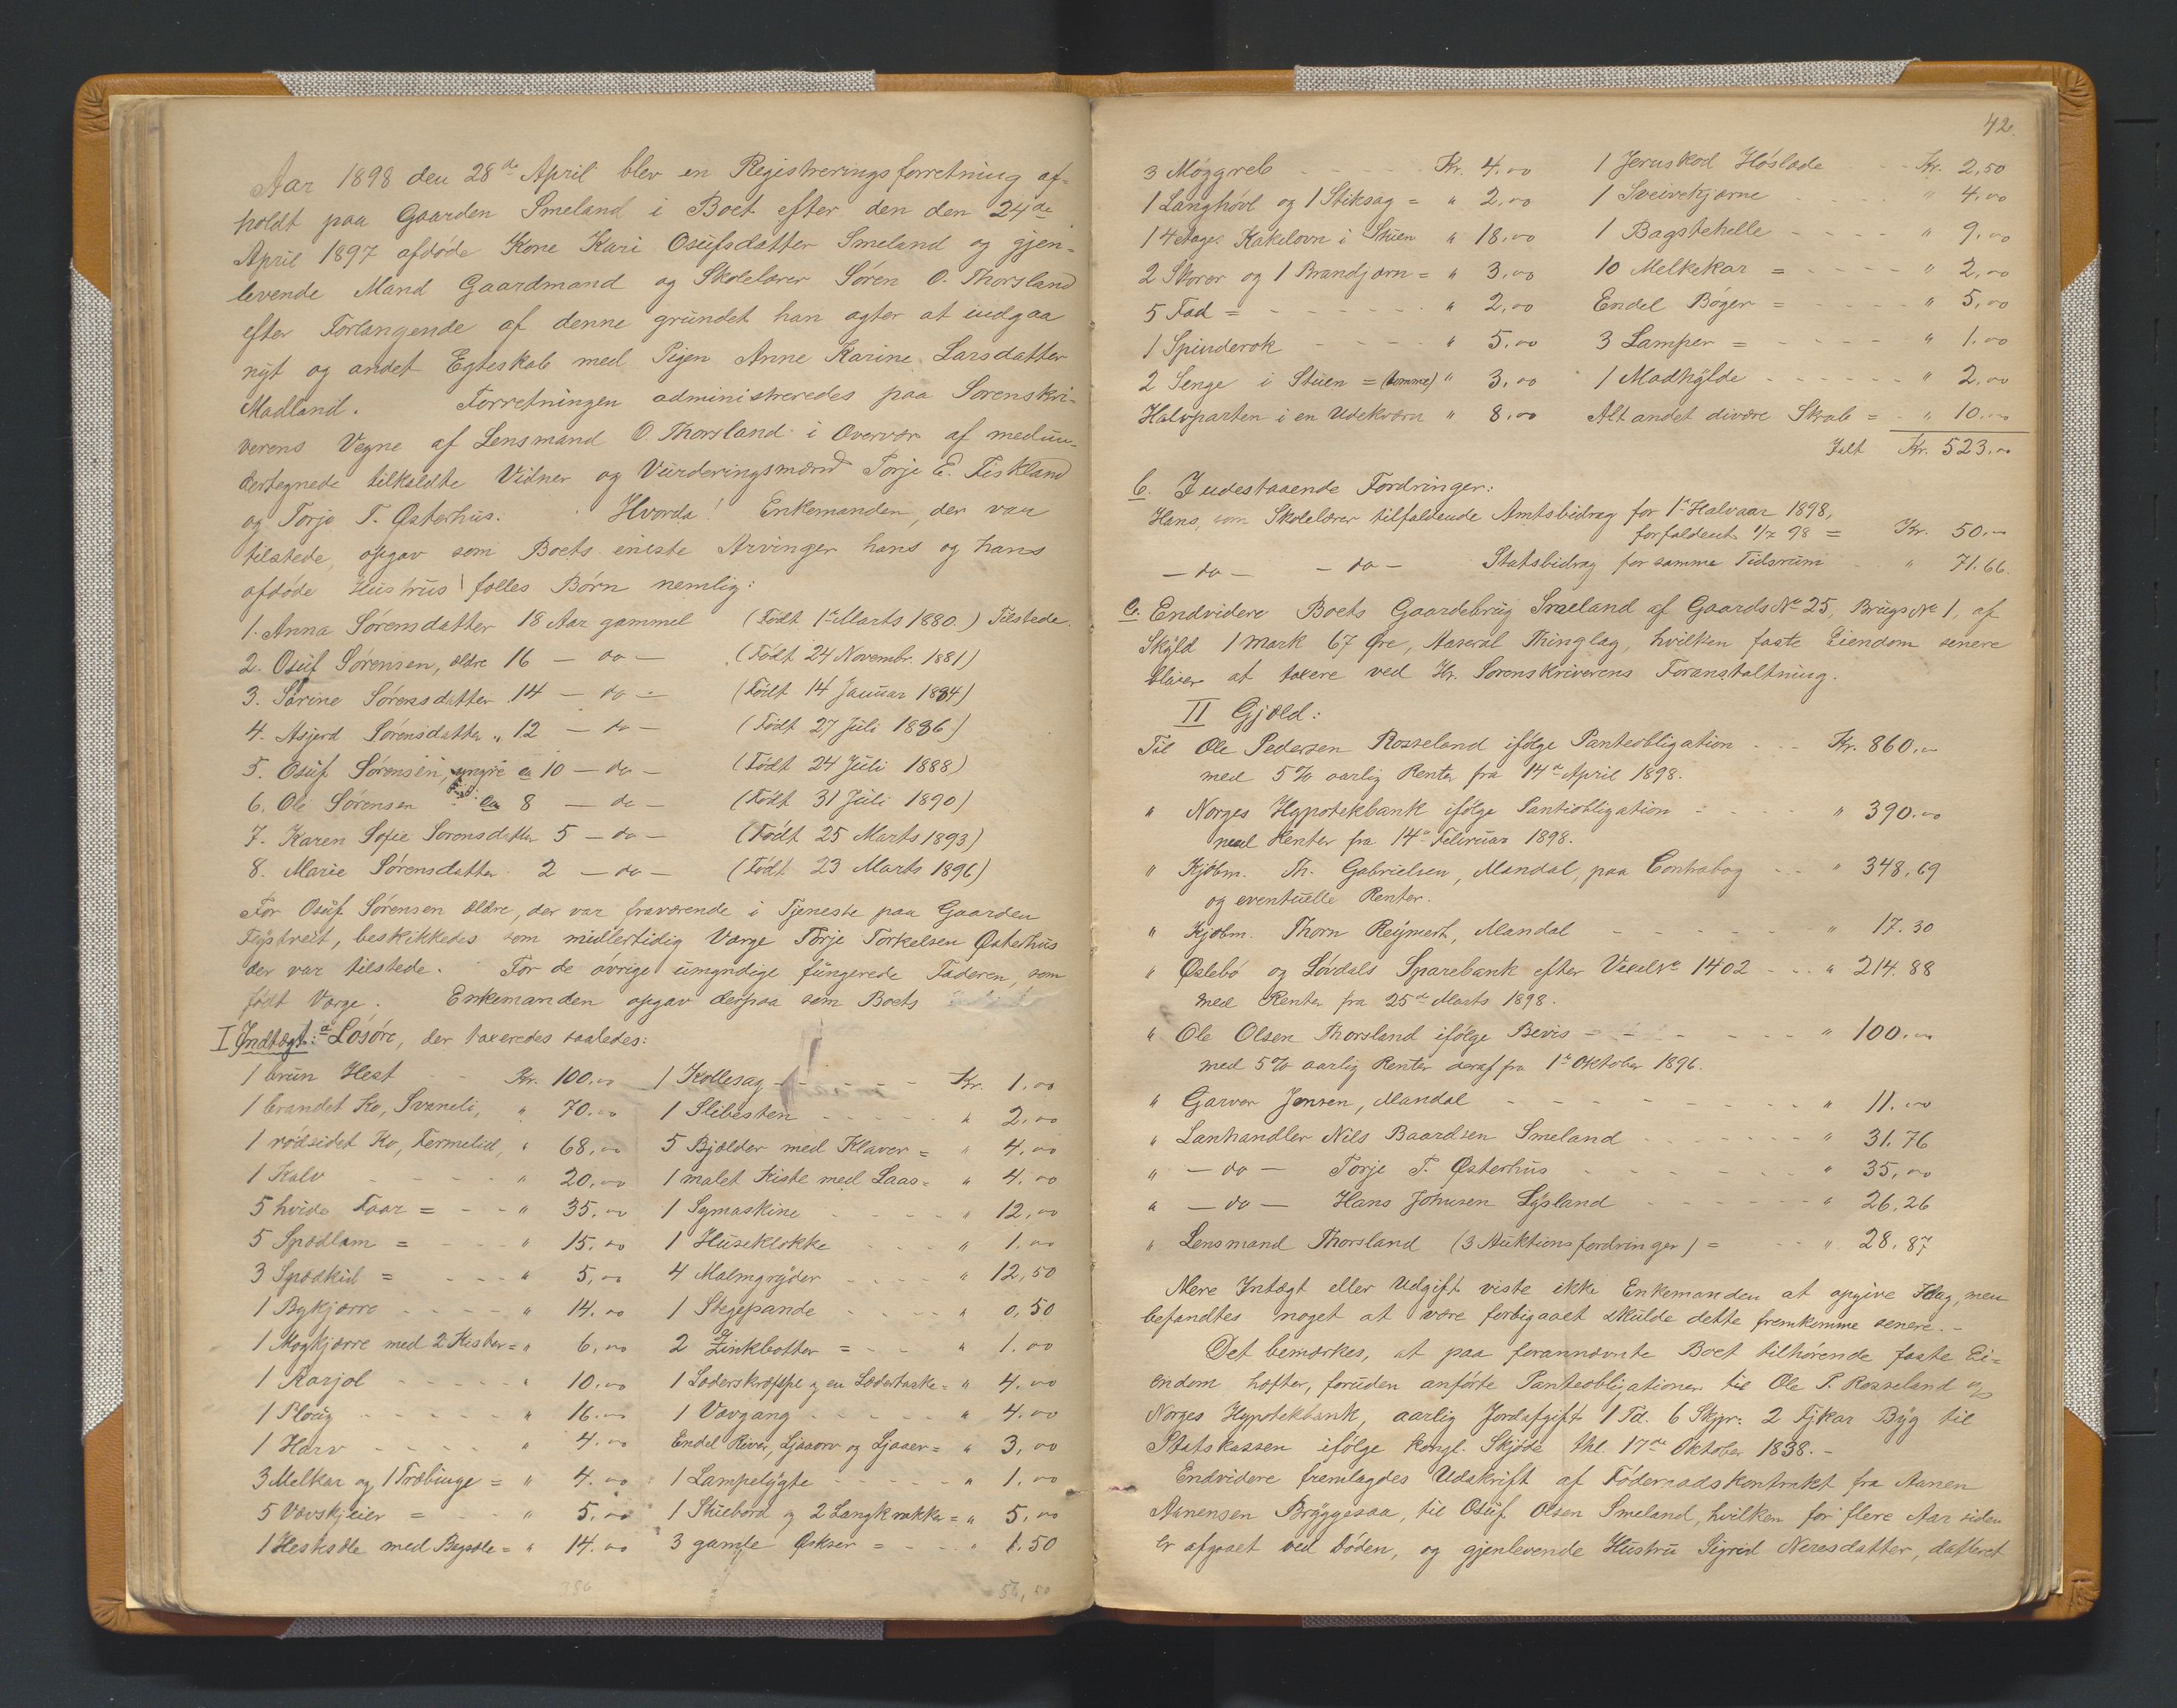 Aar 1898 den 28de April blev en Registreringsforretning af-
holdt paa Gaarden Smeland i Boet efter den den 24de
April 1897 afdøde Kone Kari Osufsdatter Smeland og gjen-
levende Mand Gaardmand og Skolelærer Søren O. Thorsland
efter Forlangende af denne grundet han agter at indgaa
nyt og andet Egteskab med Pigen Anne Karine Larsdatter
Madland. Forretningen administreredes paa Sorenskri-
verens Vegne af Lensmand O. Thorsland i Overvær af medun-
dertegnede tilkaldte Vidner og Vurderingsmænd Torje E. Fiskland
og Torje T. Østerhus. Hvorda! Enkemanden, der var
tilstede, opgav som Boets eneste Arvinger hans og hans
afdøde Hustrus fælles Børn nemlig:
1. Anna Sørensdatter 18 Aar gammel (Født 1ste Marts 1880.) Tilstede.
2. Osuf Sørensen, ældre 16 — do — (Født 24 Novembr. 1881)
3. Sørine Sørensdatter 14 — do — (Født 14 Januar 1884)
4. Asjerd Sørensdatter " 12 — do — (Født 27 Juli 1886)
5. Osuf Sørensen, yngre ca 10 — do — (Født 24 Juli 1888)
6. Ole Sørensen ca 8 — do — (Født 31 Juli 1890)
7. Karen Sofie Sørensdatter 5 — do — (Født 25 Marts 1893)
8. Marie Sørensdatter 2 — do — (Født 23 Marts 1896)
For Osuf Sørensen ældre, der var fraværende i Tjeneste paa Gaarden
Fuystveit, beskikkedes som midlertidig Værge Torje Torkelsen Østerhus
der var tilstede. For de øvrige umyndige fungerede Faderen, som
født Værge. Enkemanden opgav derpaa som Boets
I Indtægt: a Løsøre, der taxeredes saaledes:
1 brun Hest - - Kr. 100.00
1 brandet Ko, Svaneli, " 70.00
1 rødsidet Ko, Fermelid, " 68,00
1 Kalv - - - - " 20,00
5 hvide Faar = - - " 35.00
5 Spædlam = - - " 15.00
3 Spædkid = - - - " 5,00
1 Bykjærre - - - - " 14.00
1 Møgkjærre med 2 Kister = " 6,00
1 Karjol - - - - - " 10.00
1 Ploug - - - - - " 16.00
1 Harv - - - - " 4.00
3 Melkar og 1 Træbinge = " 4.00
5 Vævskjeier = - - " 5.00
1 Hestsæle med Bagsæle = " 14.00
1 Kollesag - - - - - - Kr. 1.00
1 Slibesten - - - - - " 2,00
5 Bjælder med Klaver = " 4,00
1 malet Kiste med Laas = " 4.00
1 Symaskine - - - - - " 12,00
1 Huseklokke - - - " 1.00
4 Malmgryder - - - - " 12,50
1 Stegepande - - - - " 0,50
2 Zinkbøtter = - - " 1.00
1 Læderskræppe og en Lædertaske = " 4.00
1 Vævgang - - - - " 4.00
Endel River, Ljaaorv og Ljaaer = " 3,00
1 Lampelygte - - - - - " 1.00
1 Stuebord og 2 Langkrakke = " 5,00
3 gamle Økser = - - - " 1.50
286
56,50
42.
3 Møggreb - - - - - Kr. 4.00
1 Langhøvl og 1 Stiksag = " 2,00
1 4etages Kakelovn i Stuen " 18,00
2 Skorer og 1 Brandjærn = " 3,00
5 Fad = - - - - - - - " 2,00
1 Spinderok - - - - " 5.00
2 Senge i Stuen = (tomme) " 3,00
Halvparten i en Udekværn " 8,00
1 Jernskod Høslæde - - Kr. 2,50
1 Sveivekjærne - - - - - " 4,00
1 Bagstehelle - - - - " 9,00
10 Melkekar = - - - - " 2,00
Endel Bøger = - - - - - " 5,00
3 Lamper = - - - - " 1.00
1 Madhylde - - - - - - " 2,00
Alt andet divære Skrab = " 10.00
Ialt Kr. 523.00
b. Indestaaende Fordringer:
Hans, som Skolelærer tilfaldende Amtsbidrag for 1ste Halvaar 1898,
forfaldent 1/7 98 = Kr. 50.—
— do — — do — Statsbidrag for samme Tidsrum " 71.66.
c. Endvidere Boets Gaardebrug Smeland af Gaards No 25, Brugs No 1, af
Skyld 1 Mark 67 Øre, Aaseral Thinglag, hvilken faste Eiendom senere
bliver at taxere ved Hr. Sorenskriverens Foranstaltning.
II Gjæld:
Til Ole Pedersen Rosseland ifølge Panteobligation - - - Kr. 860.—
med 5% aarlig Renter fra 14de April 1898.
" Norges Hypotekbank ifølge Panteobligation - - - " 390.00
med Renter fra 14de Februar 1898.
" Kjøbm. Th. Gabrielsen, Mandal, paa Contrabog - - - " 348,69
og eventuelle Renter.
" Kjøbm. Thorn Reymert, Mandal - - - - - - " 17.30
" Øslebø og Løvdals Sparebank efter Vexel No 1402 - - " 214.88
med Renter fra 25de Marts 1898.
" Ole Olsen Thorsland ifølge Bevis - - - - - - " 100.—
med 5% aarlig Renter deraf fra 1ste Oktober 1896.
" Garver Jensen, Mandal - - - - - - - - - " 11.—
" Lanhandler Nils Baardsen Smeland - - - - - - - " 31.76
" — do — Torje T. Østerhus - - - - - - - " 35,00
" — do — Hans Johnsen Lysland - - - - - - - " 26,26
" Lensmand Thorsland (3 Auktionsfordringer) = - - " 28.87
Mere Intægt eller Udgift viste ikke Enkemanden at opgive Idag, men
befandtes noget at være forbigaaet skulde dette fremkomme senere. –
Det bemærkes, at paa forannævnte Boet tilhørende faste Ei=
endom hæfter, foruden anførte Panteobligationer til Ole P. Rosseland og
Norges Hypotekbank, aarlig Jordafgift 1 Td. 6 Skpr. 2 Fjkar Byg til
Statskassen ifølge kongl. Skjøde thl. 17de Oktober 1838. –
Endvidere fremlagdes Udskrift af Føderaadskontrakt fra Aanen
Aanensen Bryggesaa, til Osuf Olsen Smeland, hvilken for flere Aar siden
er afgaaet ved Døden, og gjenlevende Hustru Sigrid Neresdatter, datteret